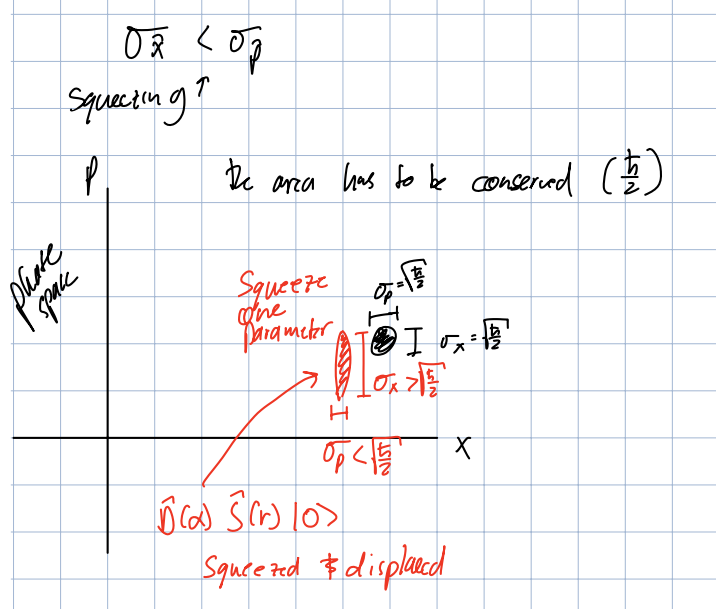 σx̂ < σp̂
Squeezing ↑
P
the area has to be conserved (ħ/2)
phase
space
Squeeze
one
parameter
σp = √ħ/2
σx = √ħ/2
σx > √ħ/2
σp < √ħ/2
x
D̂(α) Ŝ(r) |0>
Squeezed & displaced